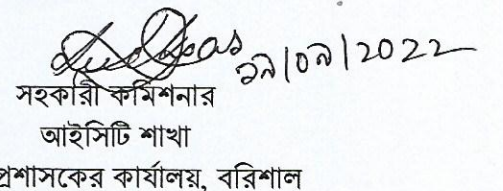 ১৯/০৯/2022
সহকারী কমিশনার
আইসিটি শাখা
প্রশাসকের কার্যালয়, বরিশাল